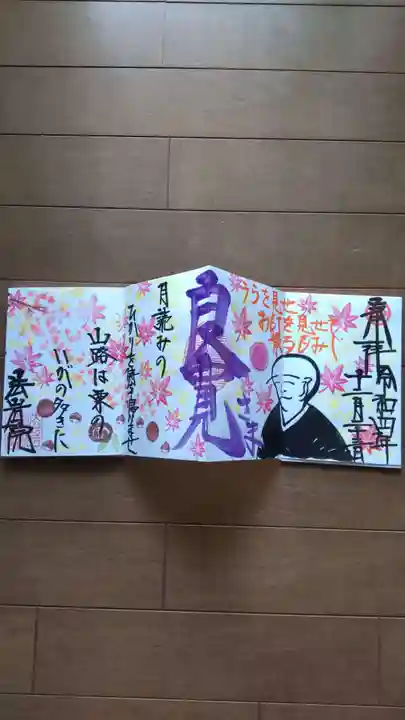 奉拝 令和四年
十一月二十三日
うらを見せ
おもてを見せて
散るもみじ
良寛
さま
月読みの
ひかりを待ちて帰りませ
山路は栗の
いがの多きに